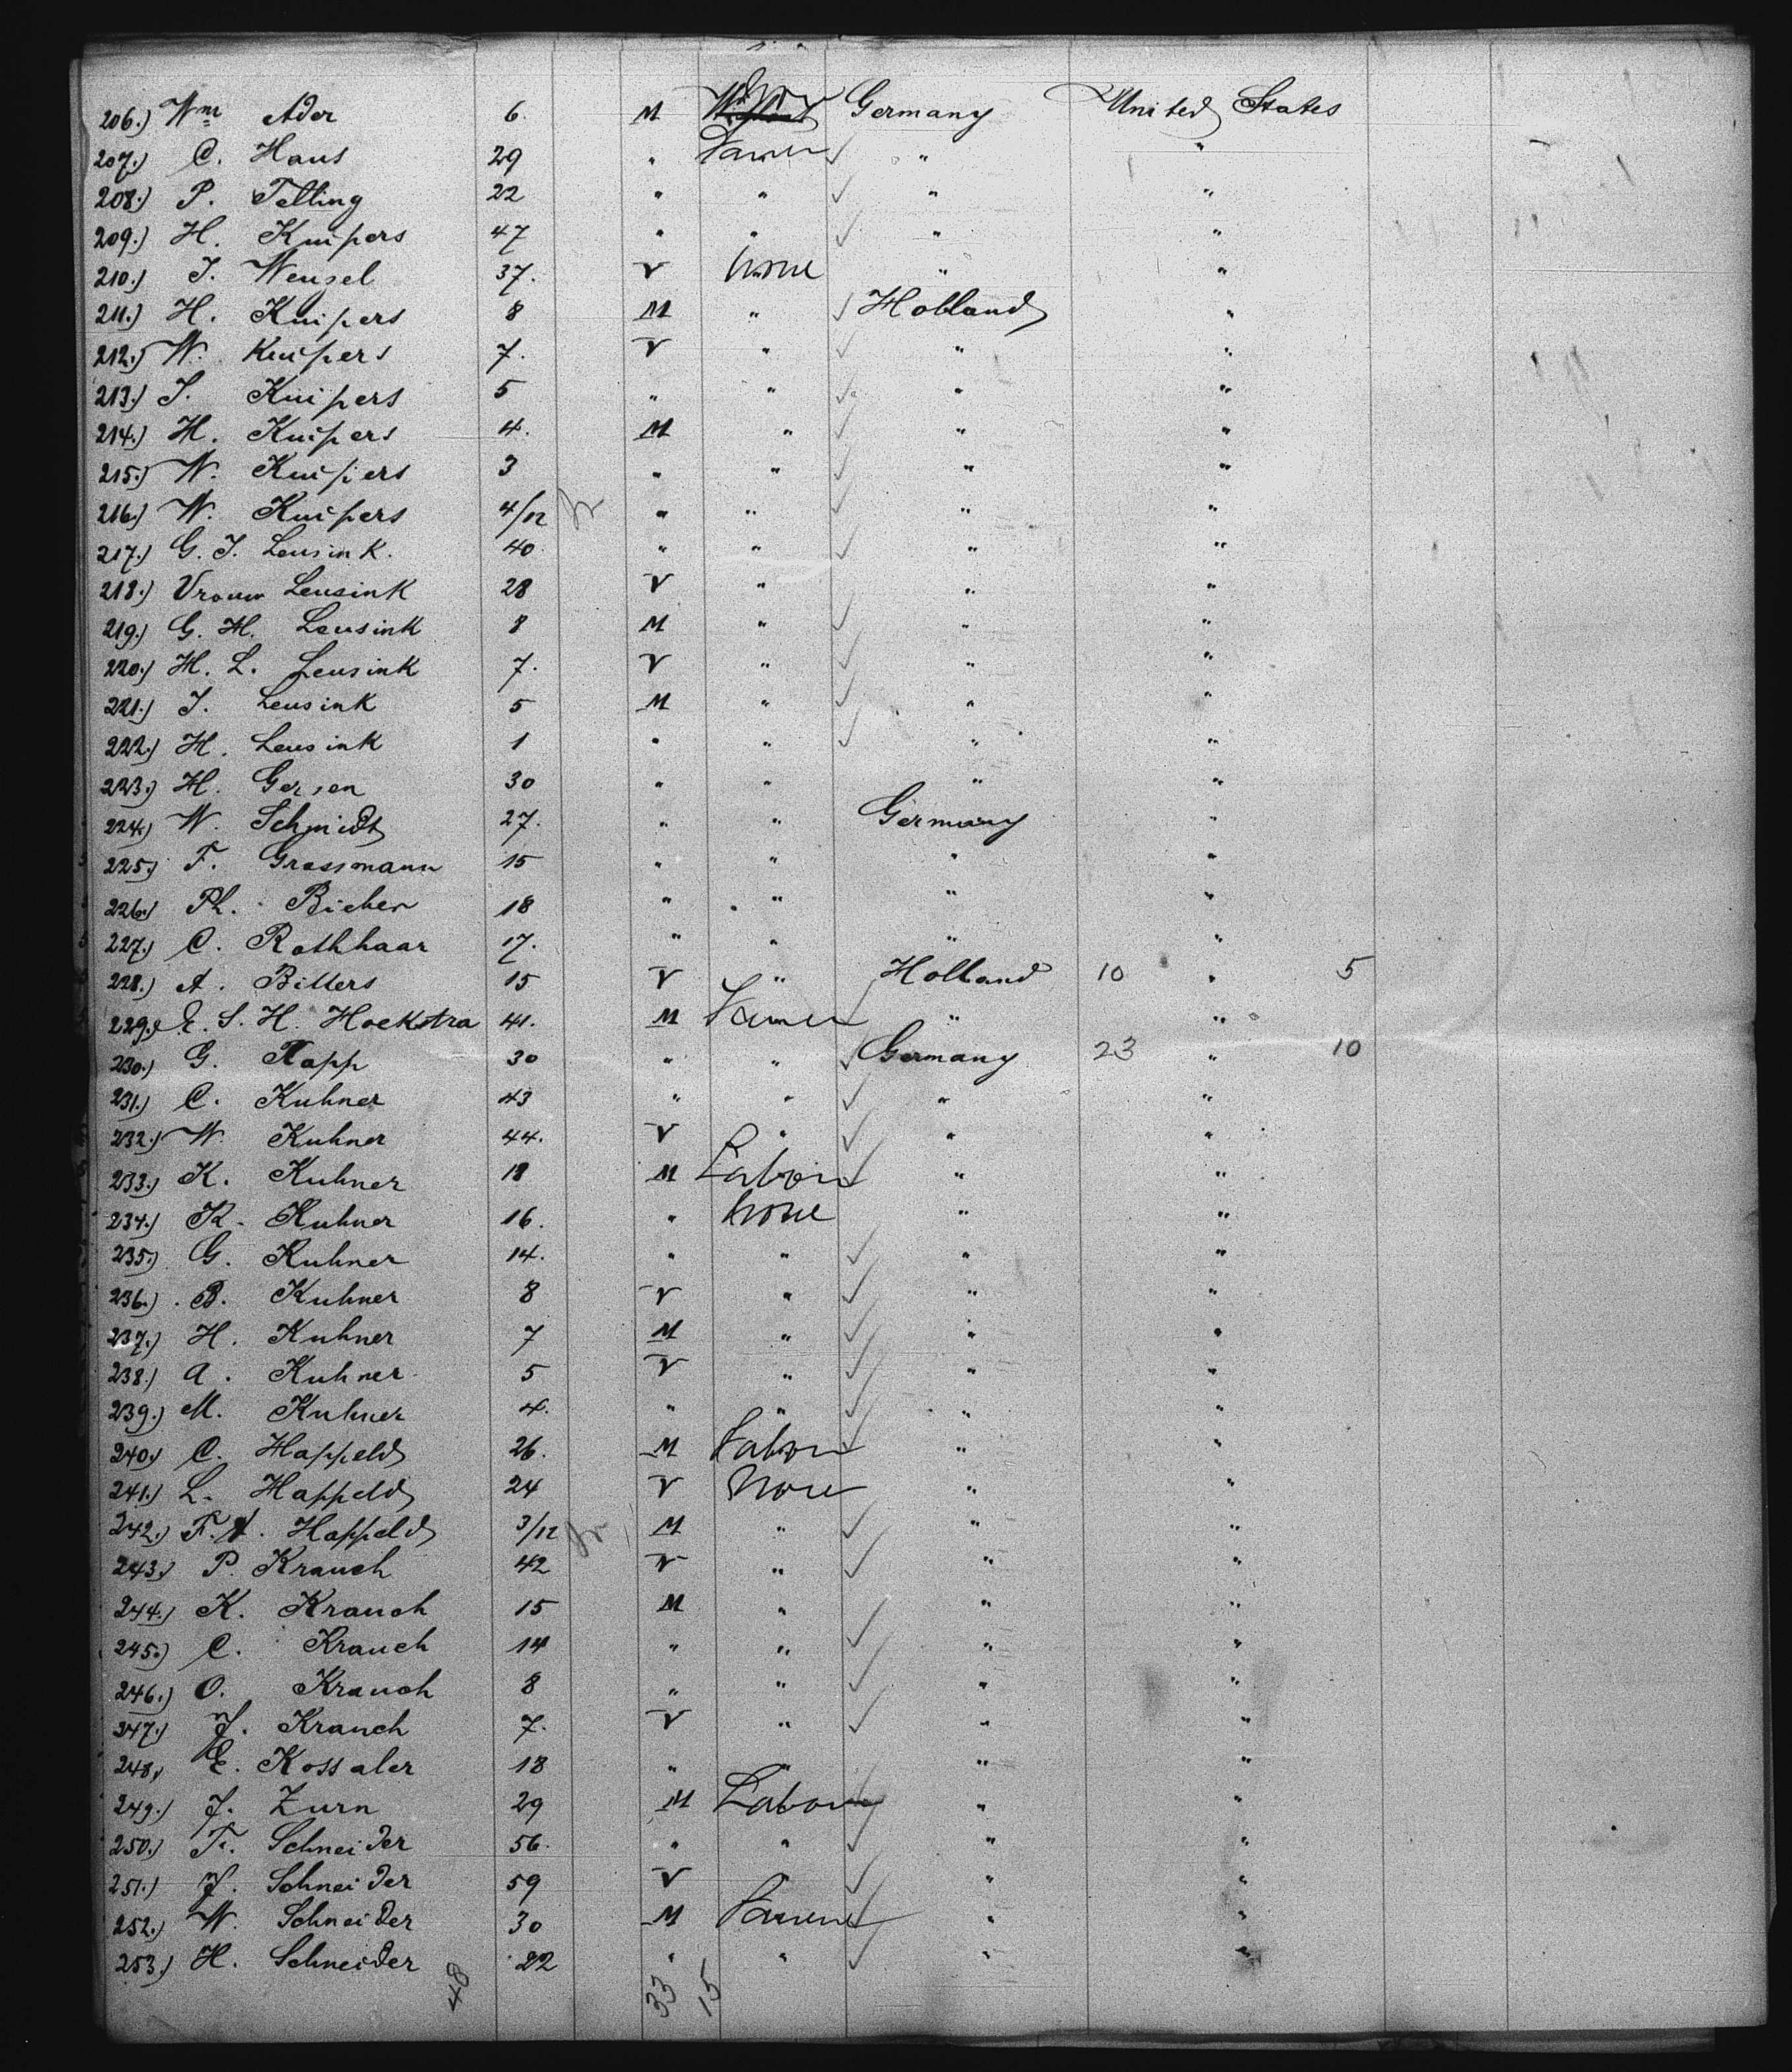 206.) Wm Ader 6. M Germany United States
207.) C. Haus 29 " Farmer " "
208.) P. Telling 22 " " " "
209.) H. Kuipers 47 " " " "
210.) J. Wenzel 37. V None " "
211.) H. Kuipers 8 M " Holland "
212.) W. Kuipers 7. V " " "
213.) J. Kuipers 5 " " " "
214.) H. Kuipers 4. M " " "
215.) W. Kuipers 3 " " " "
216.) W. Kuipers 4/12 " " " "
217.) G. J. Leusink. 40 " " " "
218.) Vrouw Leusink 28 V " " "
219.) G. H. Leusink 8 M " " "
220.) H. L. Leusink 7. V " " "
221.) J. Leusink 5 M " " "
222.) H. Leusink 1 " " " "
223.) H. Gersen 30 " " " "
224.) W. Schmidt 27. " " Germany "
225.) F. Grossmann 15 " " " "
226.) Ph. Bieber 18 " " " "
227.) C. Rothhaar 17. " " " "
228.) A. Bitters 15 V " Holland 10 " 5
229.) S. H. Hoekstra 41. M Farmer " "
230.) G. Rapp 30 " " Germany 23 " 10
231.) C. Kuhner 43 " " " "
232.) W. Kuhner 44. V " " "
233.) K. Kuhner 18 M Labor " "
234.) K. Kuhner 16. " None " "
235.) G. Kuhner 14. " " " "
236.) B. Kuhner 8 V " " "
237.) H. Kuhner 7 M " " "
238.) A. Kuhner 5 V " " "
239.) M. Kuhner 4. " " " "
240.) C. Happeld 26. M Labor " "
241.) L. Happeld 24 V None " "
242.) F. Happeld 3/12 M " " "
243.) P. Krauch 42 V " " "
244.) K. Krauch 15 M " " "
245.) C. Krauch 14 " " " "
246.) O. Krauch 8 " " " "
247.) J. Krauch 7. V " " "
248.) E. Kossaler 18 " " " "
249.) J. Zurn 29 M Labor " "
250.) F. Schneider 56. " " " "
251.) J. Schneider 59 V " " "
252.) W. Schneider 30 M Farmer " "
253.) H. Schneider 22 " " " "
48 33 15